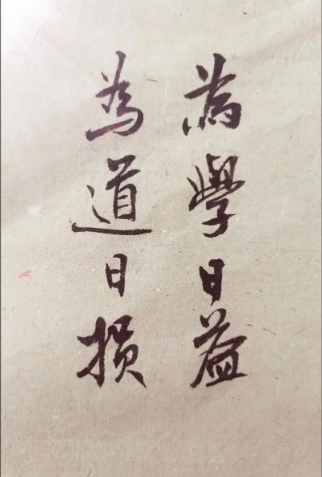 為學日益
為道日損